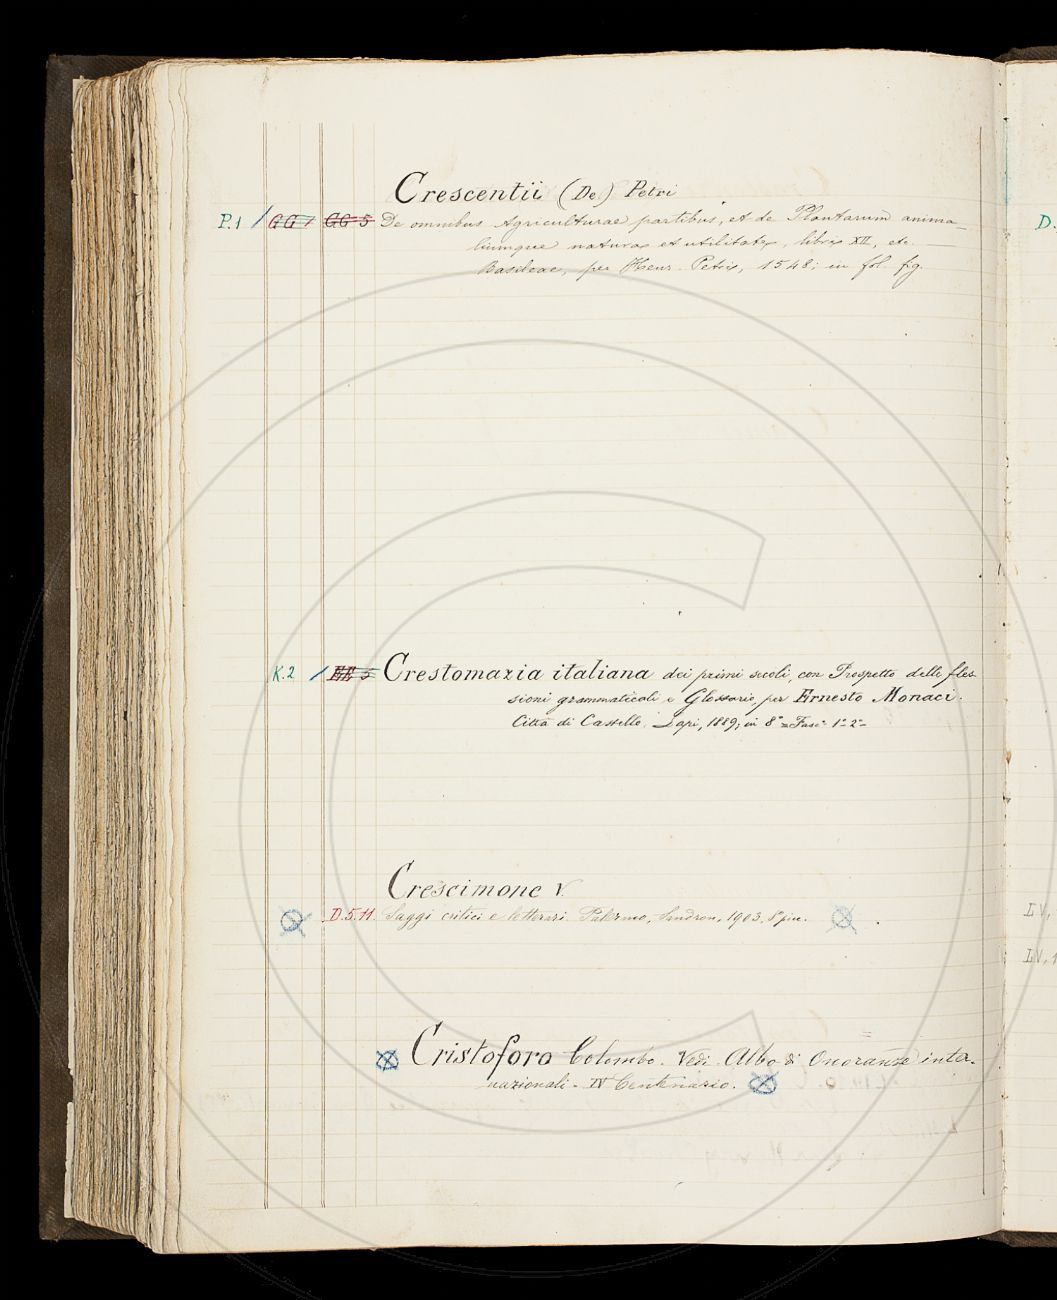 Crescentii (De) Petri
P.1 / GG 1 GG 5 De omnibus Agriculturae partibus, et de Plantarum anima-
liumque natura et utilitate, libri XII, etc.
Basileae, per Henr. Petri, 1548; in fol. fig.
D.
K.2 / EE 5 Crestomazia italiana dei primi secoli, con Prospetto delle fles
sioni grammaticali e Glossario, per Ernesto Monaci.
Città di Castello. Lapi, 1889; in 8° = Fasc. 1° 2°
Crescimone V.
D.5.11 Saggi critici e letterari. Palermo, Sandron, 1903. 8° picc.
LV,
LV, 1
Cristoforo Colombo. Vedi Albo di Onoranze inter-
nazionali - IV Centenario.